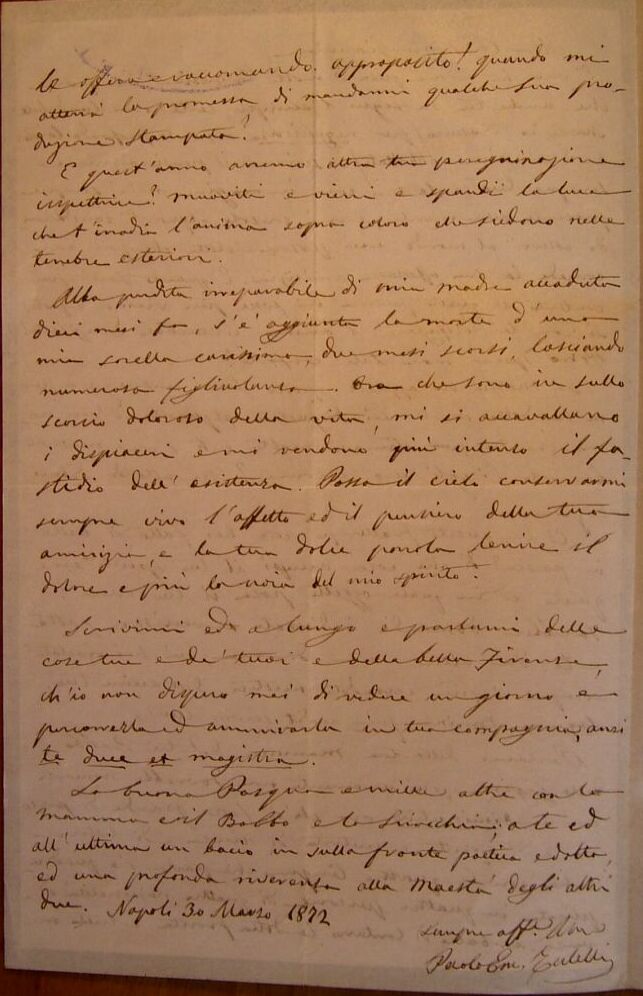 le offra e raccomando. appropòsito! quando mi
atterrà la promessa di mandarmi qualche sua pro-
duzione stampata!
E quest'anno avremo altra tua peregrinazione
ispettrice? muoviti e vieni e spandi la luce
che t'irradia l'anima sopra coloro che siedono nelle
tenebre esteriori.
Alla perdita irreparabile di mia madre accaduta
dieci mesi fa, s'è aggiunta la morte d'una
mia sorella carissima, due mesi scorsi, lasciando
numerosa figliuolanza. Ora che sono in sullo
scorcio doloroso della vita, mi si accavallano
i dispiaceri e mi rendono più intenso il fa-
stidio dell'esistenza. Possa il cielo conservarmi
sempre vivo l'affetto ed il pensiero della tua
amicizia, e la tua dolce parola lenire il
dolore e più la noia del mio spirito!
Scrivimi ed a lungo e parlami delle
cose tue e de' tuoi e della bella Firenze,
ch'io non dispero mai di vedere un giorno e
percorrerla ed ammirarla in tua compagnia, anzi
te duce et magistra.
La buona Pasqua e mille altre con la
mamma e il Babbo e la : a te ed
all'ultima un bacio in sulla fronte poetica e dotta,
ed una profonda riverenza alla Maestà degli altri
due. Napoli 30 Marzo 1872
sempre aff.
Paolo Em.